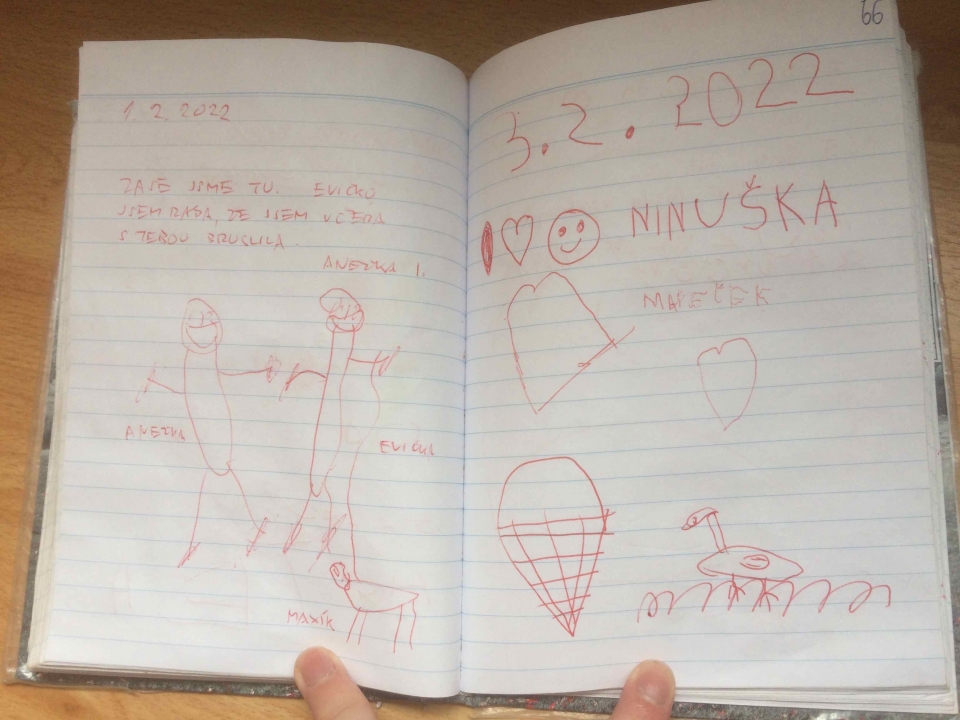 1. 2. 2022
ZASE JSME TU. EVIČKO,
JSEM RÁDA, ŽE JSEM VČERA
S TEBOU BRUSLILA.
ANEŽKA 1.
ANEŽKA
EVIČKA
MAXÍK
66
3. 2. 2022
NINUŠKA